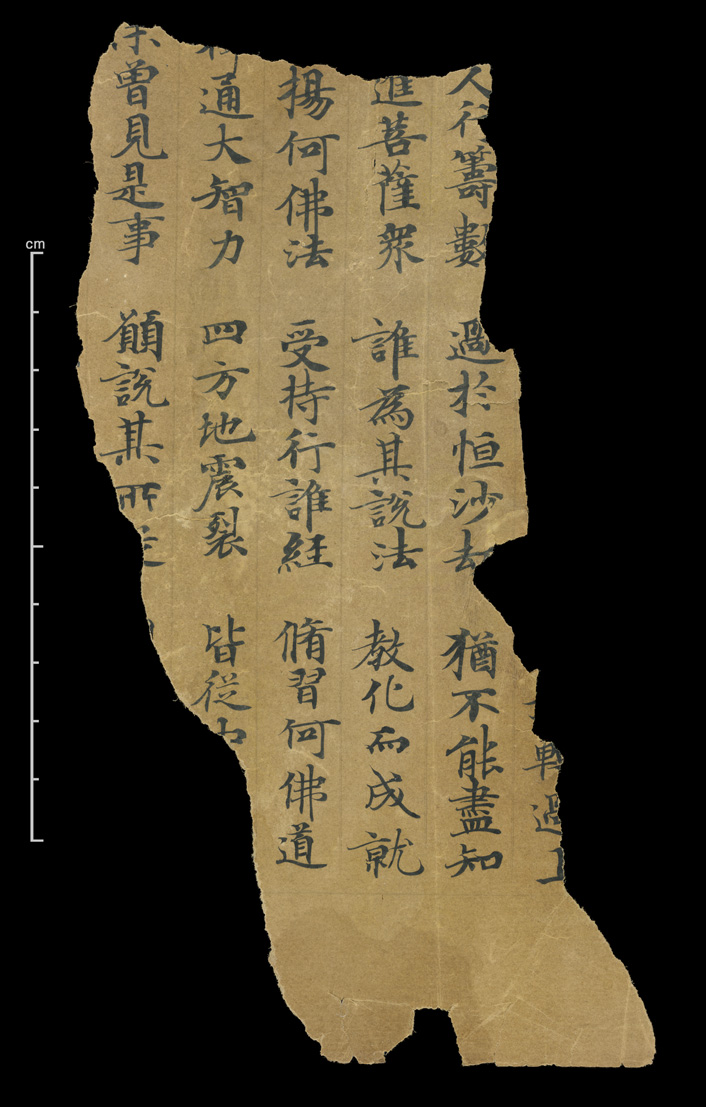 轉過上
人行籌數　過於恒沙劫　猶不能盡知
進菩薩衆　誰為其說法　教化而成就
揚何佛法　受持行誰經　脩習何佛道
通大智力　四方地震裂　皆從中
未曾見是事　願說其所